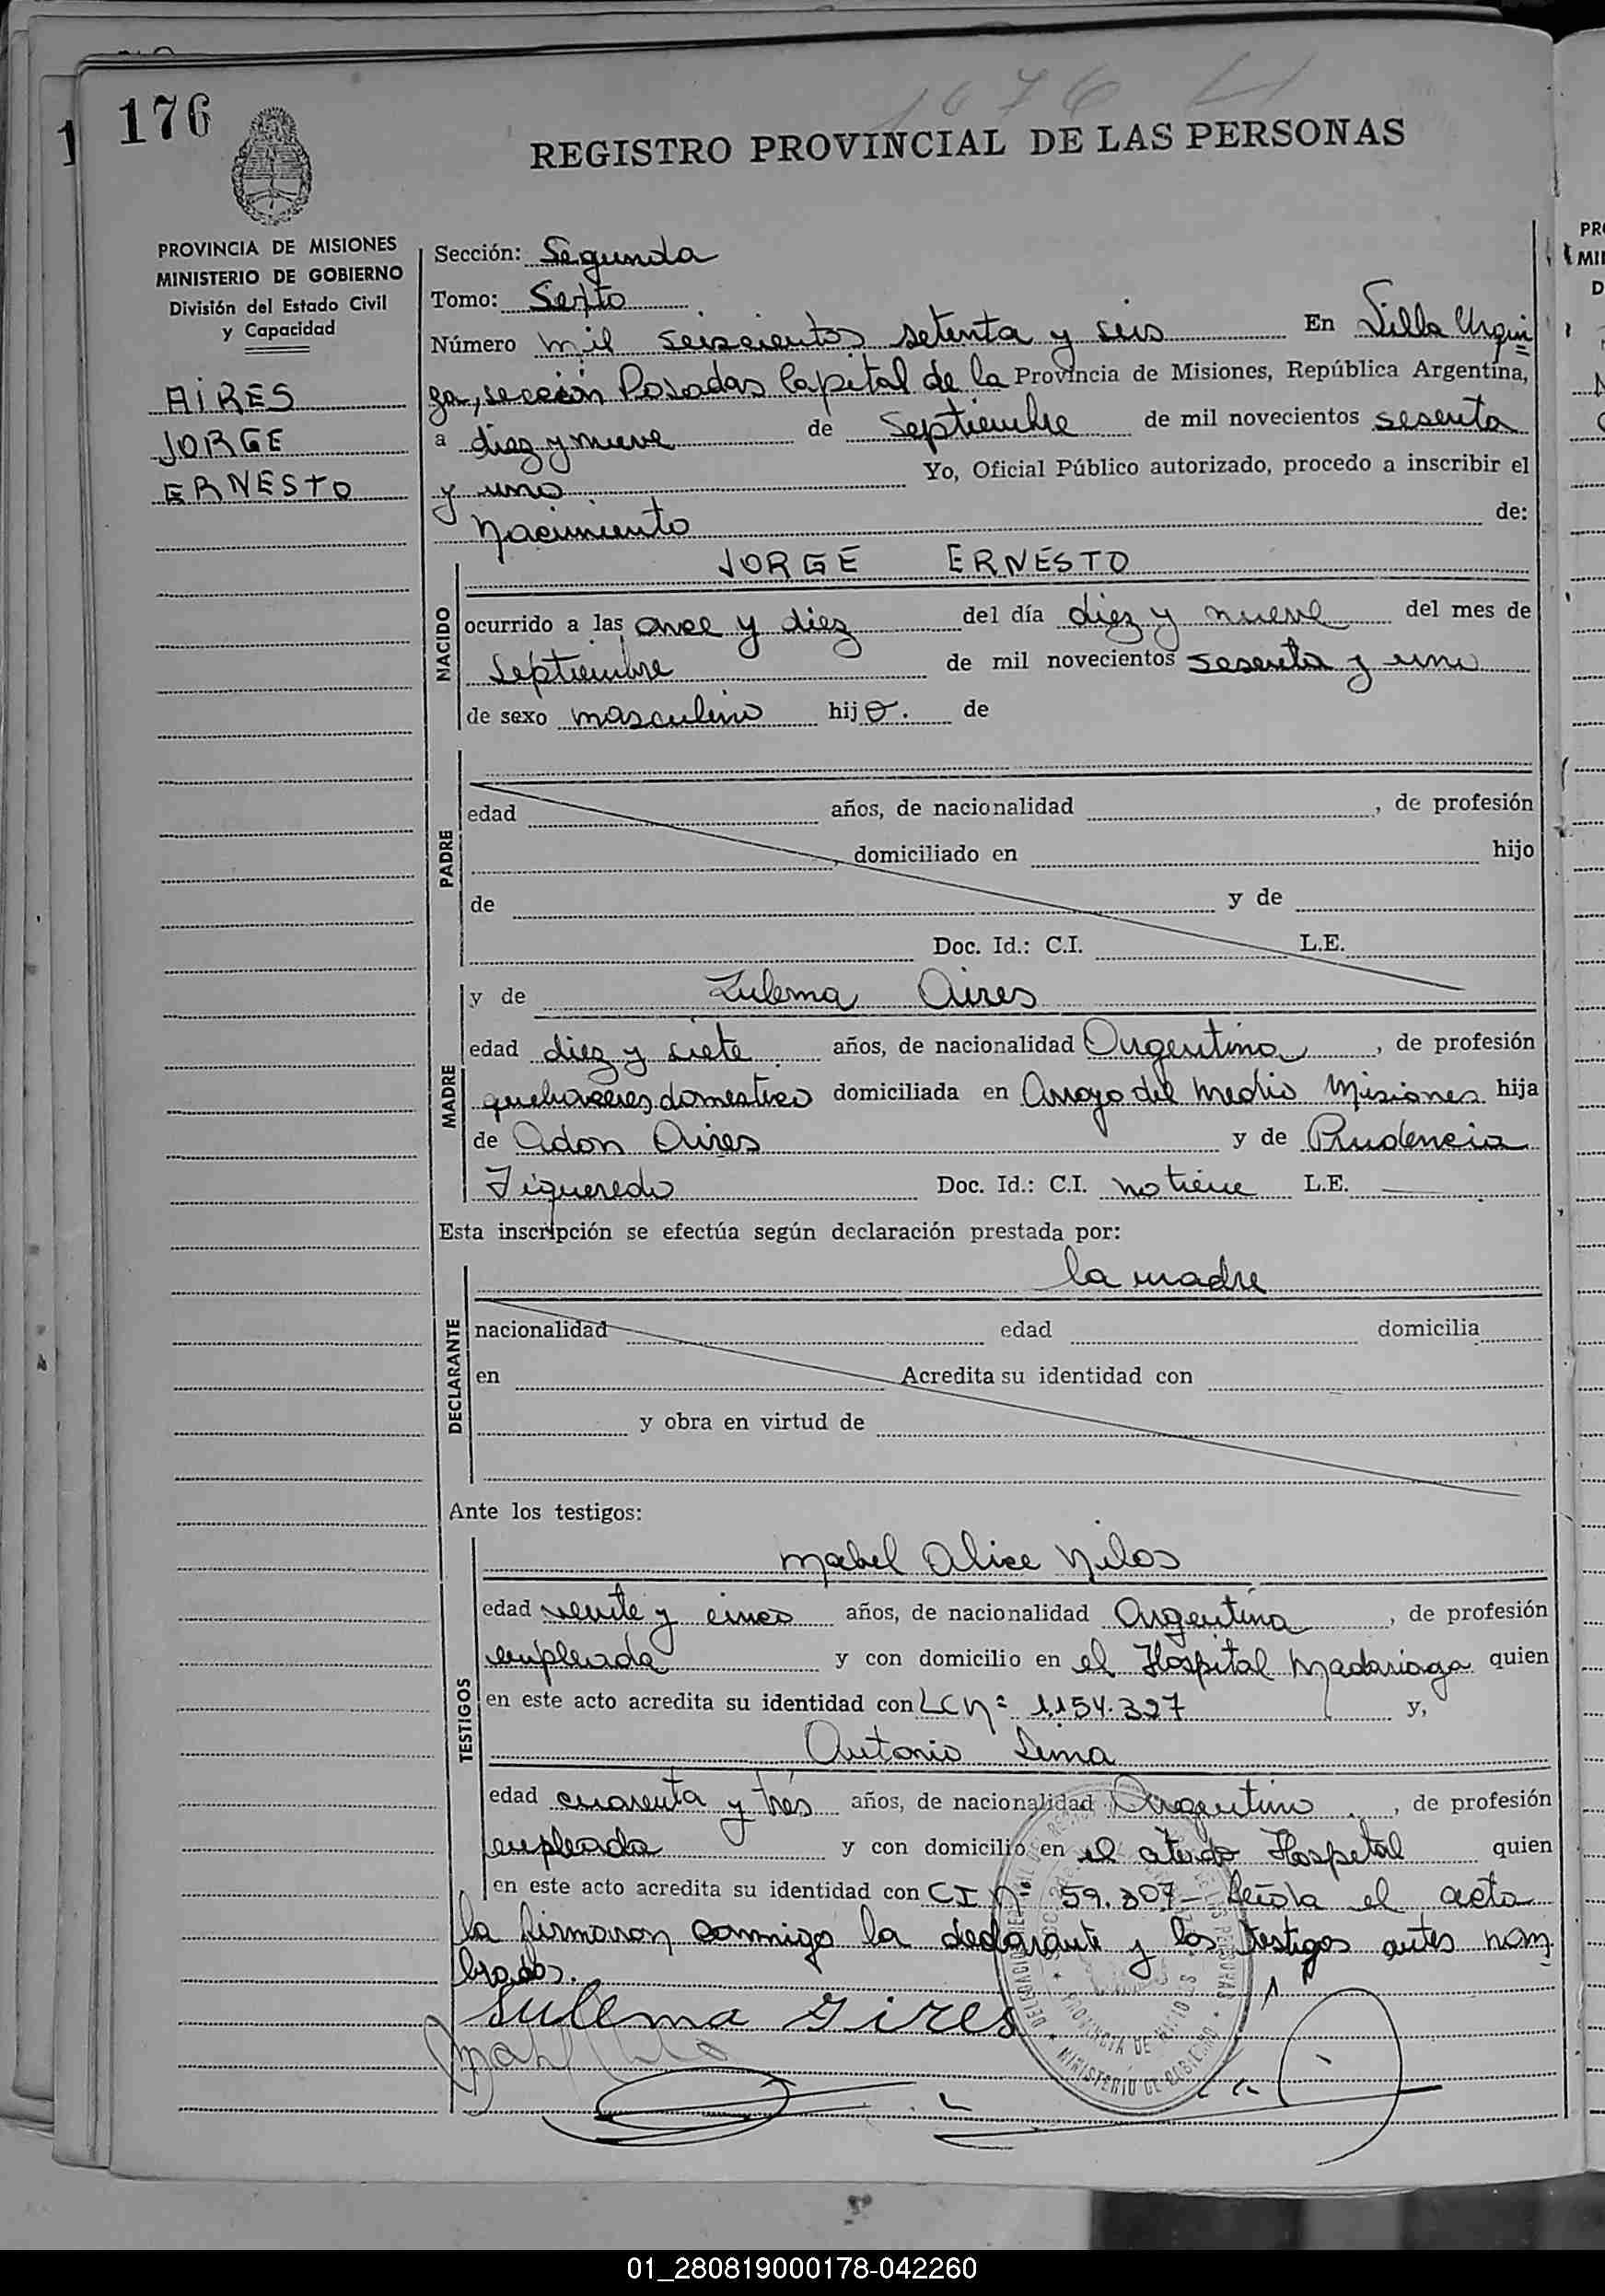 176
1676
REGISTRO PROVINCIAL DE LAS PERSONAS
PROVINCIA DE MISIONES
MINISTERIO DE GOBIERNO
División del Estado Civil
y Capacidad
AIRES
JORGE
ERNESTO
Sección: Segunda
Tomo: Sexto
Número mil seiscientos setenta y seis En Villa Urqui
za, sección Posadas Capital de la Provincia de Misiones, República Argentina,
a diez y nueve de Septiembre de mil novecientos sesenta
y uno Yo, Oficial Público autorizado, procedo a inscribir el
Nacimiento de:
NACIDO
JORGE ERNESTO
ocurrido a las once y diez del día diez y nueve del mes de
Septiembre de mil novecientos sesenta y uno
de sexo masculino hijo. de
PADRE
edad años, de nacionalidad , de profesión
, domiciliado en hijo
de y de
Doc. Id.: C.I. L.E.
MADRE
y de Zulema Aires
edad diez y siete años, de nacionalidad Argentina , de profesión
quehaceres domestico domiciliada en Arroyo del Medio Misiones hija
de Adon Aires y de Prudencia
Figueredo Doc. Id.: C.I. no tiene L.E. —
Esta inscripción se efectúa según declaración prestada por:
la madre
DECLARANTE
nacionalidad edad domicilia
en Acredita su identidad con
y obra en virtud de
Ante los testigos:
TESTIGOS
Mabel Alice Nilos
edad veinte y cinco años, de nacionalidad Argentina , de profesión
empleada y con domicilio en el Hospital Madariaga quien
en este acto acredita su identidad con LC Nº 1.154.327 y,
Antonio Lima
edad cuarenta y tres años, de nacionalidad Argentino , de profesión
empleado y con domicilio en el citado Hospital quien
en este acto acredita su identidad con CI Nº 59.307- Leída el acta
la firmaron conmigo la declarante y los testigos antes nom
brados.
Sulema Aires
MINISTERIO DE GOBIERNO
PROVINCIA DE MISIONES
01_280819000178-042260